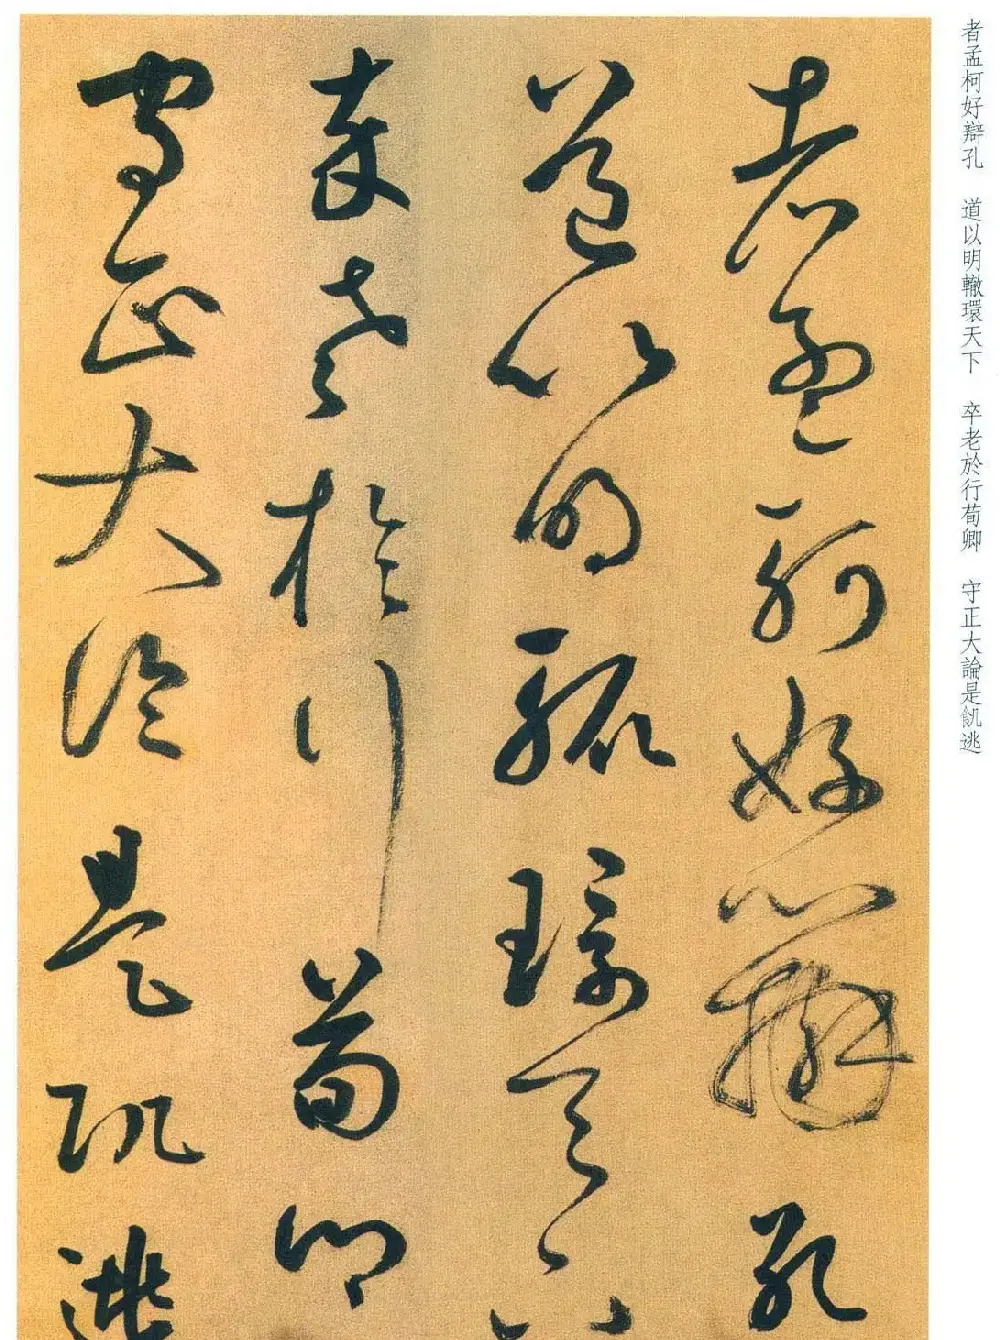 者孟柯好辯孔　道以明轍環天下　卒老於行荀卿　守正大論是飢逃
者孟軻好辯孔
道以明轍環天下
卒老於行荀卿
守正大論是飢逃